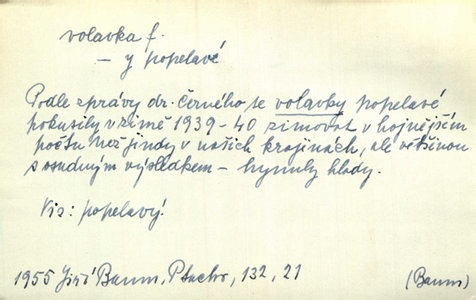 volavka f.
– y popelavé
Podle zprávy dr. Černého se volavky popelavé
pokusily v zimě 1939–40 zimovat v hojnějším
počtu než jindy v našich krajinách, ale většinou
s osudným výsledkem – hynuly hlady.
Viz: popelavý!
1955 Jiří Baum, Ptactvo, 132, 21
(Baum)